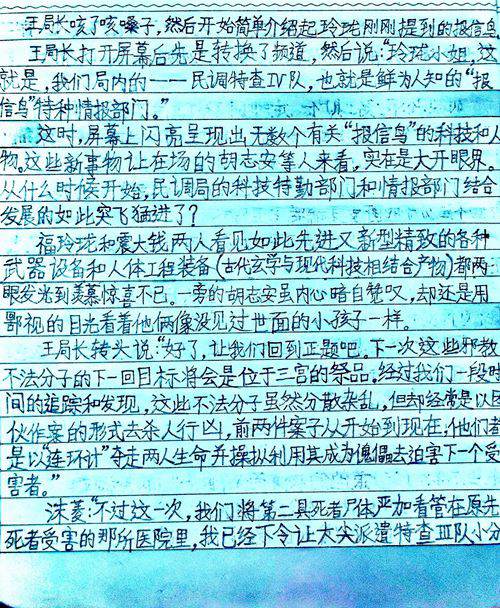 王局长咳了咳嗓子，然后开始简单介绍起玲珑刚刚提到的报信鸟
王局长打开屏幕后先是转换了频道，然后说：“玲珑小姐，这
就是，我们局内的一一民调特查IV队，也就是鲜为人知的“报
信鸟”特种情报部门。”
这时，屏幕上闪亮呈现出无数个有关“报信鸟”的科技和人
物。这些新事物让在场的胡志安等人来看，实在是大开眼界。
从什么时候开始，民调局的科技特勤部门和情报部门结合
发展的如此突飞猛进了？
福玲珑和震大钱两人看见如此先进又新型精致的各种
武器设备和人体工程装备（古代玄学与现代科技相结合产物）都两
眼发光到羡慕惊喜不已。一旁的胡志安虽内心暗自赞叹，却还是用
鄙视的目光看着他俩像没见过世面的小孩子一样。
王局长转头说：“好了，让我们回到正题吧。下一次这些邪教
不法分子的下一回目标将会是位于三宫的祭品。经过我们一段时
间的追踪和发现，这些不法分子虽然分散杂乱，但却经常是以团
伙作案的形式去杀人行凶，前两件案子从开始到现在，他们都
是以“连环计”夺走两人生命并操纵利用其成为傀儡去迫害下一个受
害者。”
沫菱：“不过这一次，我们将第二具死者尸体严加看管在原先
死者受害的那所医院里，我已经下令让大尖派遣特查III队小分